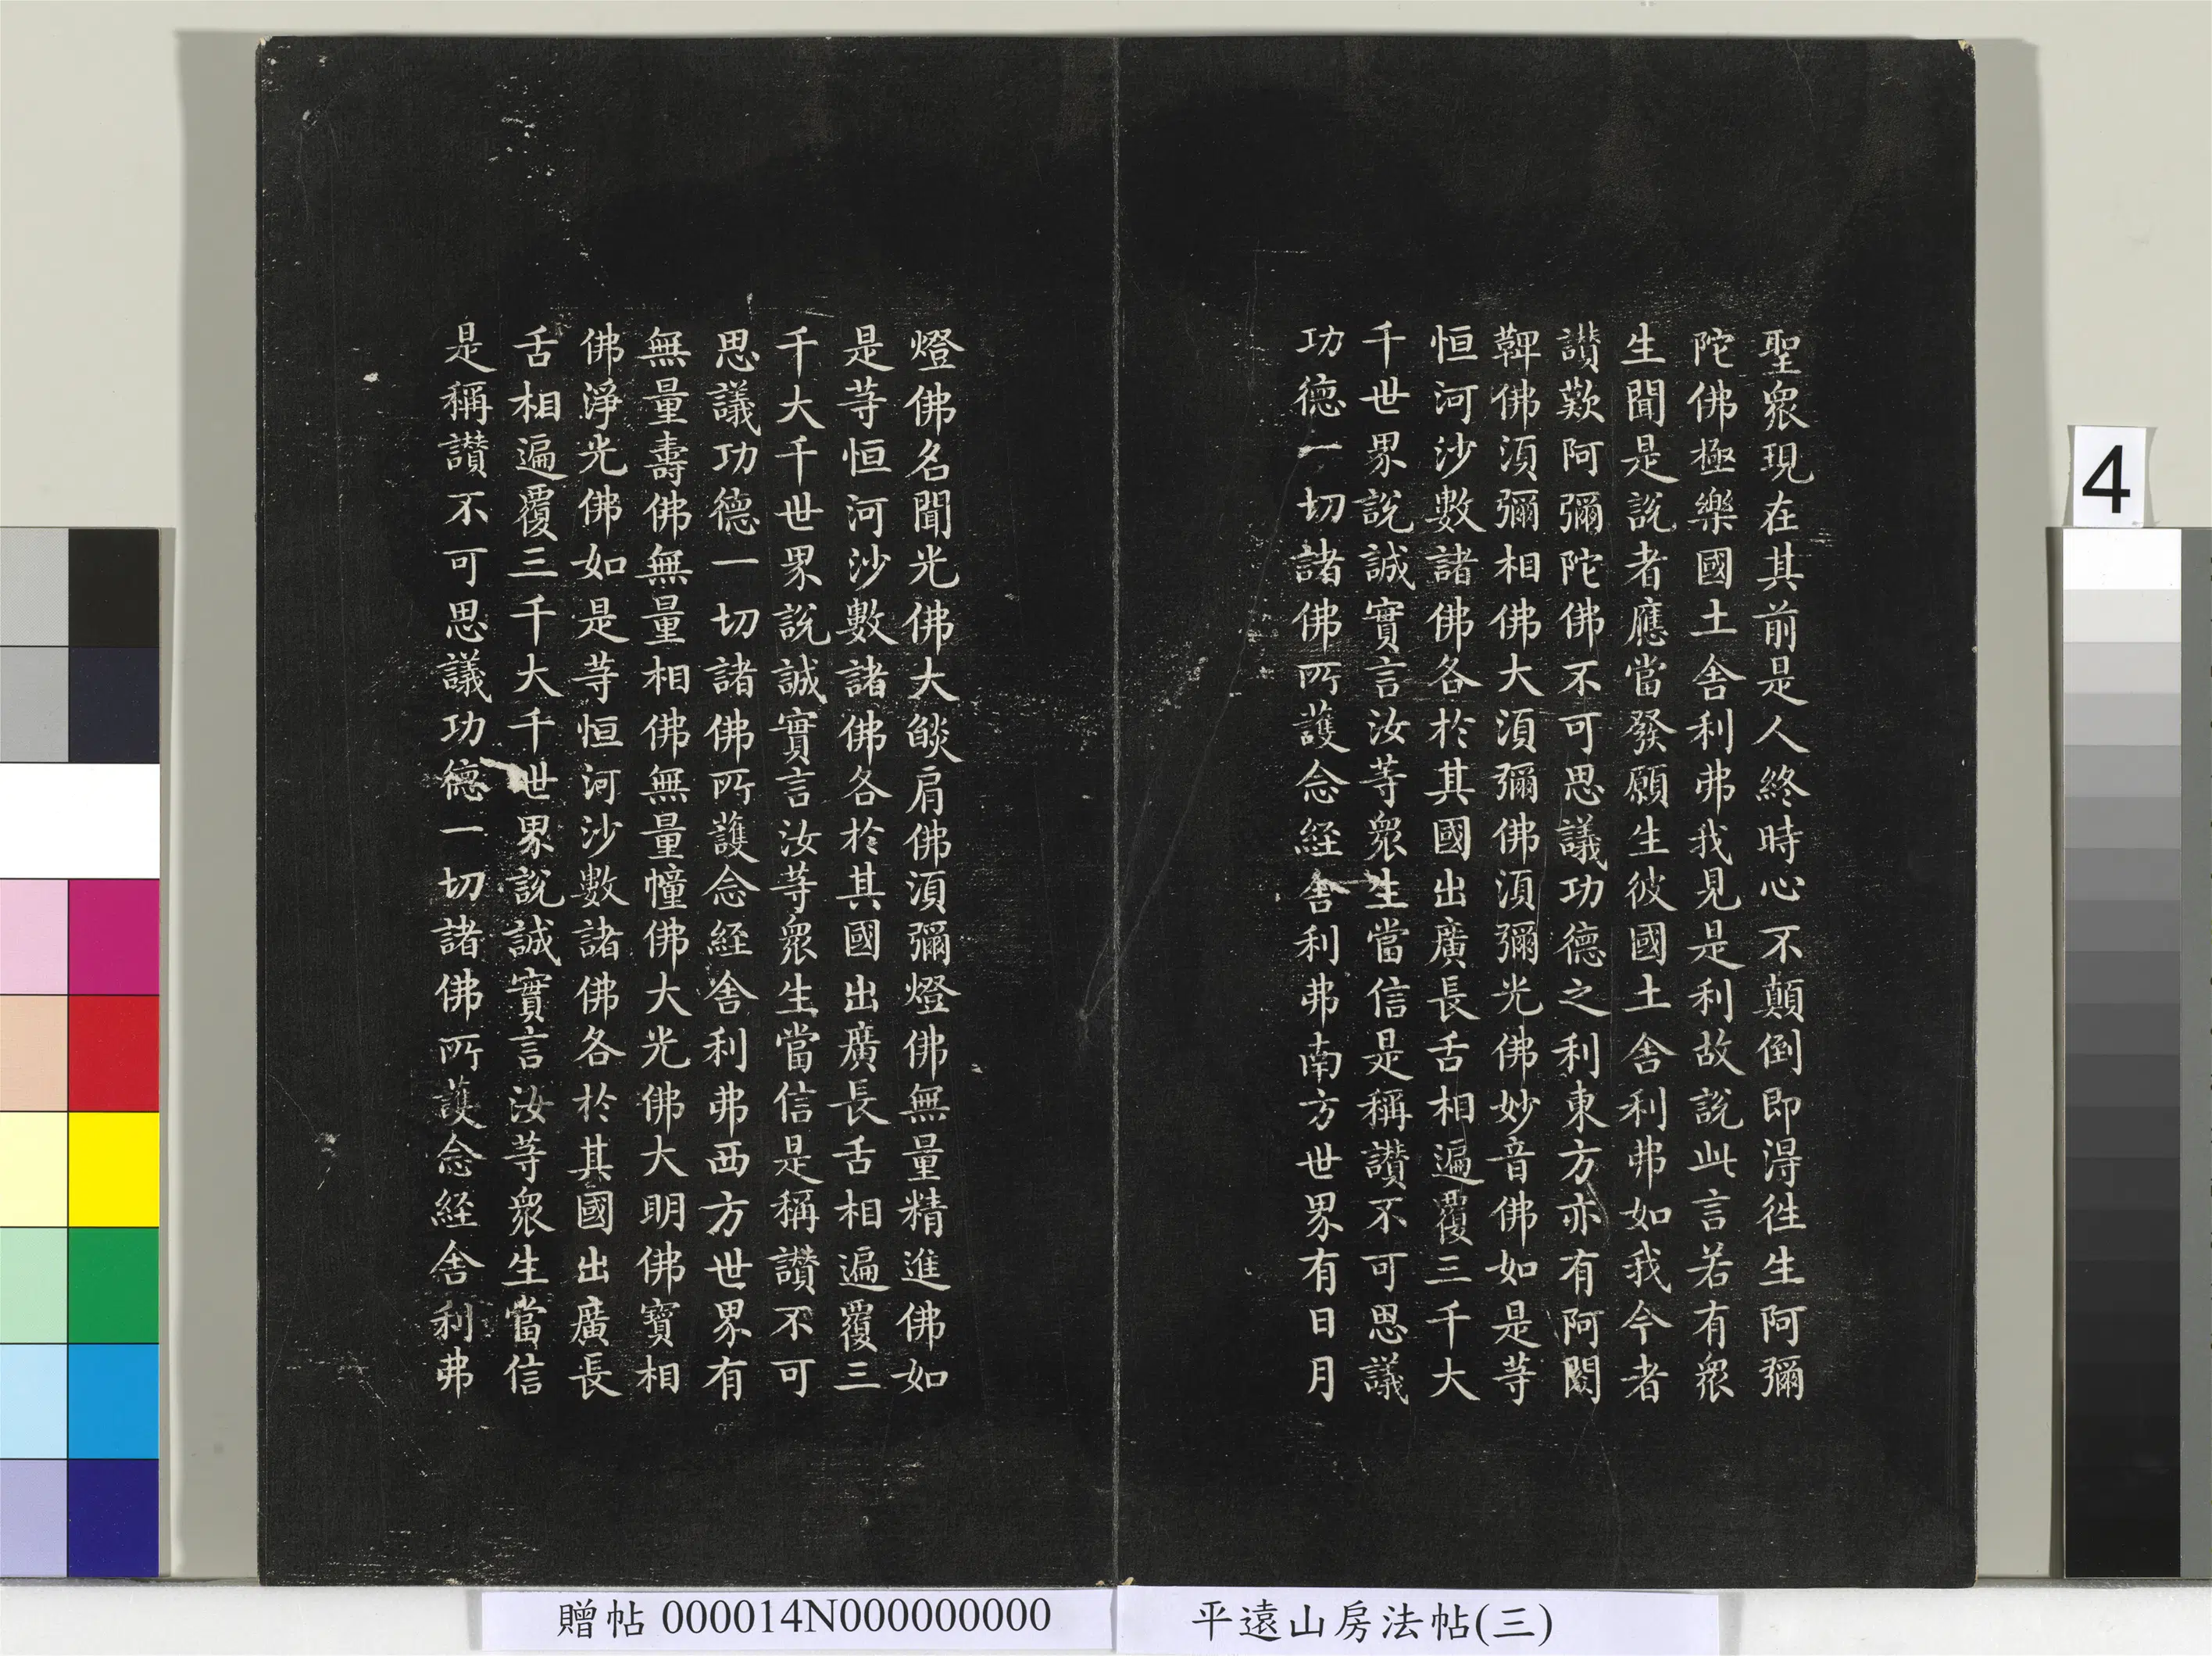 聖衆現在其前是人終時心不顛倒即得往生阿彌
陀佛極樂國土舍利弗我見是利故說此言若有衆
生聞是說者應當發願生彼國土舍利弗如我今者
讃歎阿彌陀佛不可思議功德之利東方亦有阿閦
鞞佛湏彌相佛大湏彌佛湏彌光佛妙音佛如是等
恒河沙數諸佛各於其國出廣長舌相遍覆三千大
千世界說誠實言汝等衆生當信是稱讃不可思議
功德一切諸佛所護念経舍利弗南方世界有日月
燈佛名聞光佛大燄肩佛湏彌燈佛無量精進佛如
是等恒河沙數諸佛各於其國出廣長舌相遍覆三
千大千世界說誠實言汝等衆生當信是稱讃不可
思議功德一切諸佛所護念経舍利弗西方世界有
無量壽佛無量相佛無量幢佛大光佛大明佛寶相
佛淨光佛如是等恒河沙數諸佛各於其國出廣長
舌相遍覆三千大千世界說誠實言汝等衆生當信
是稱讃不可思議功德一切諸佛所護念経舍利弗
4
贈帖 000014N000000000
平遠山房法帖(三)